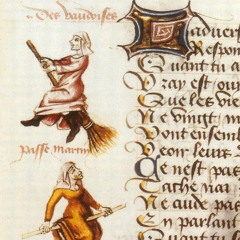 Des vaudoises
passe martin
L aduers
Respon
Quant tu a
Vray est, ou
Que les vie
Ne vingt, m
Vont ensem
Veoir leurs
Ce nest pas
Tache nar
Ne aude pas
En parlant